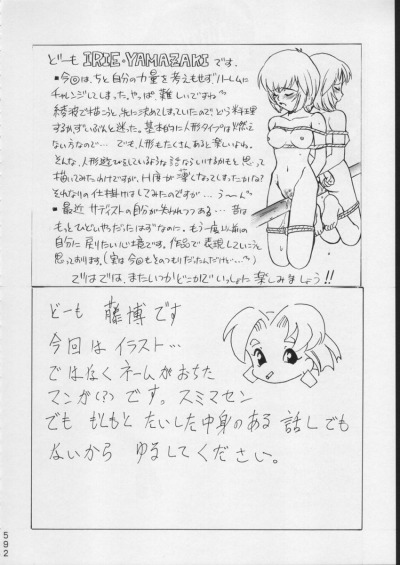 どーも IRIE・YAMAZAKI です。
■今回は、ちと自分の力量を考えもせずハーレムに
チャレンジしてしまった。やっぱ、難しいですね〜
綾波で描こうと、先に決めてしまっていたので、どう料理
するかずいぶんと迷った。基本的に人形タイプは燃え
ないほうなので… でも、人形もたくさんあると楽しいわね。
そんな、人形遊びをしているような話ならいけるかもと思って
描いてみたわけですが、H度が薄くなってしまったかな?
それなりの仕掛けはしてみたのですが… う〜ん〃
■最近サディストの自分が失われつつある… 昔は
もっとひどいやつだったはずなのに。もう一度以前の
自分に戻りたい心境です。作品で表現していこうと
思っております。(実は今回もそのつもりだったんだけど…〃)
ではでは、またいつかどこかでいっしょに楽しみましょう!!
どーも 藤博です
今回は イラスト…
ではなく ネームがおちた
マンガ(?)です。スミマセン
でも もともと たいした中身のある 話しでも
ないから ゆるしてください。
592